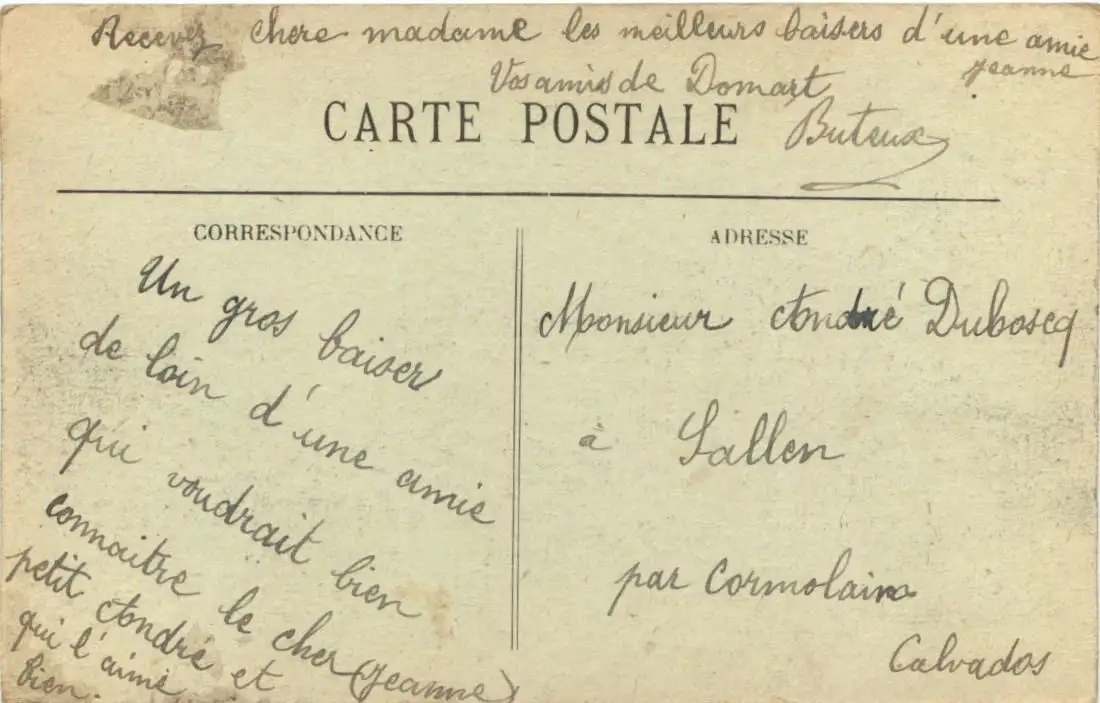 Recevez chere madame les meilleurs baisers d'une amie
Jeanne
Vos amis de Domart
Buteux
CARTE POSTALE
CORRESPONDANCE
Un gros baiser
de loin d'une amie
qui voudrait bien
connaitre le cher
petit André et (Jeanne)
qui l'aime
bien.
ADRESSE
Monsieur André Duboscq
à Sallen
par Cormolain
Calvados